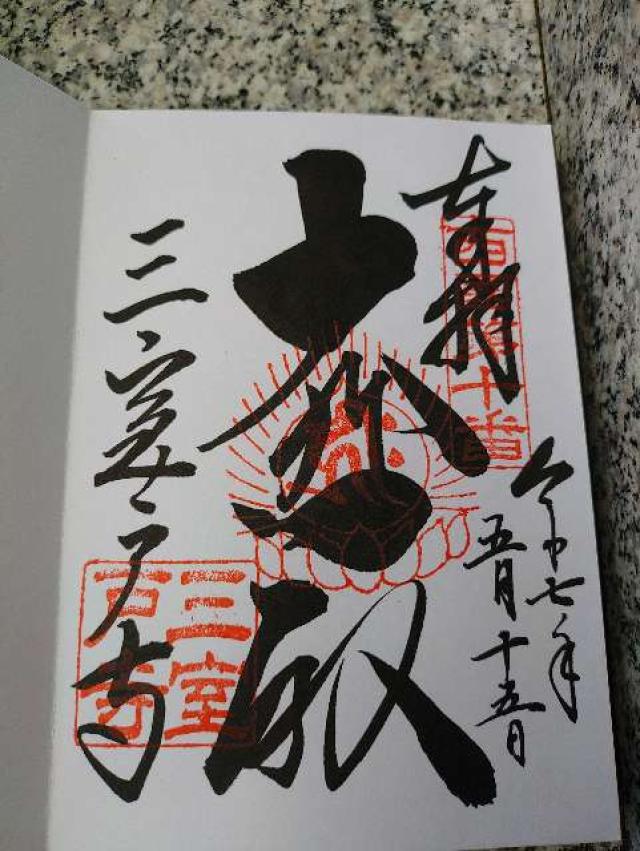 奉拝
西国第十番
令和七年
五月十五日
大悲殿
三室戸寺
三室
戸寺